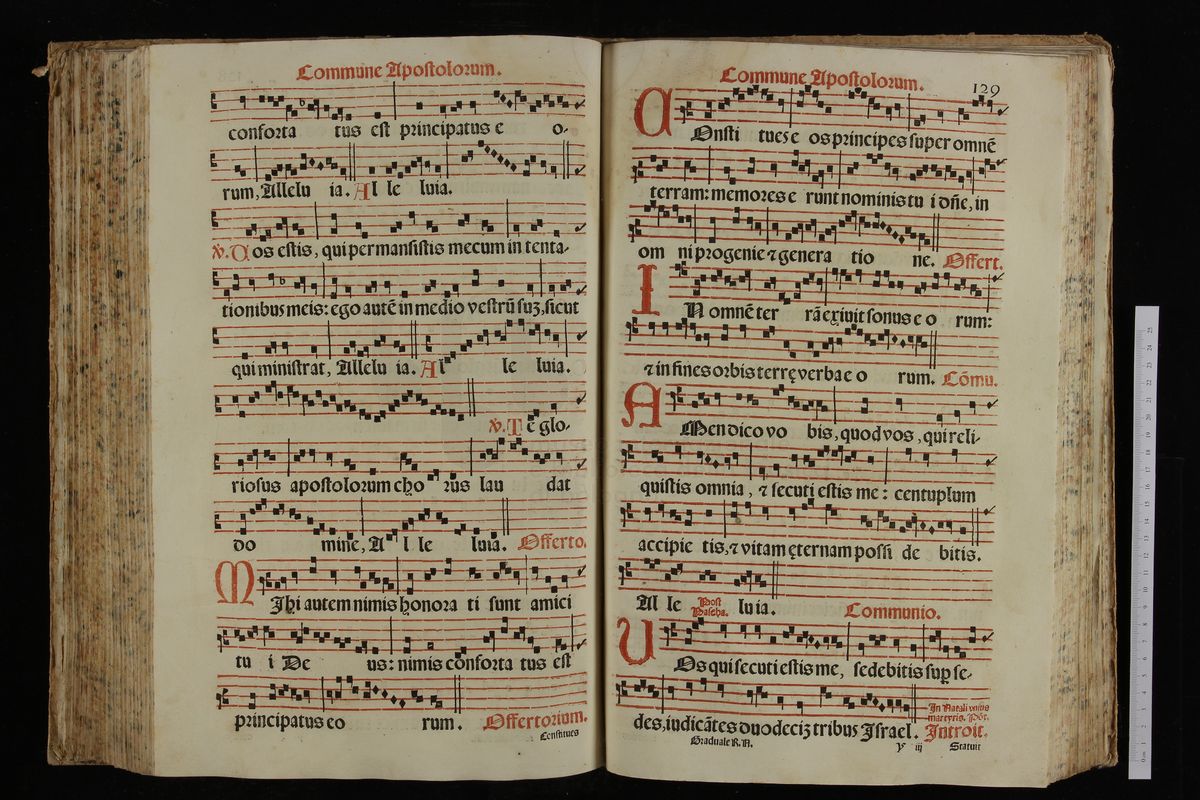 Commune Apostolorum.
conforta tus est principatus e o-
rum, Allelu ia. Al le luia.
℣. Vos estis, qui permansistis mecum in tenta-
tionibus meis: ego autē in medio vestrū suꝫ, sicut
qui ministrat, Allelu ia. Al le luia.
℣. Te glo-
riosus apostolorum cho rus lau dat
do mine, A l le luia. Offerto.
MIhi autem nimis honora ti sunt amici
tu i De us: nimis conforta tus est
principatus eo rum. Offertorium.
Constitues
Commune Apostolorum.
129
COnsti tues e os principes super omnē
terram: memores e runt nominis tu i dñe, in
om ni progenie ⁊ genera tio ne. Offert.
IN omnē ter rā exivit sonus e o rum:
⁊ in fines orbis terrę verba e o rum. Cōmu.
AMen dico vo bis, quod vos, qui reli-
quistis omnia, ⁊ secuti estis me: centuplum
accipie tis, ⁊ vitam ęternam possi de bitis.
Al le Post Pascha. lu ia. Communio.
VOs qui secuti estis me, sedebitis suꝑ se-
des, iudicātes duodeciꝫ tribus Israel.
In Natali unius
martyris. Pōt.
Introit.
Graduale R. A.
y iij
Statuit